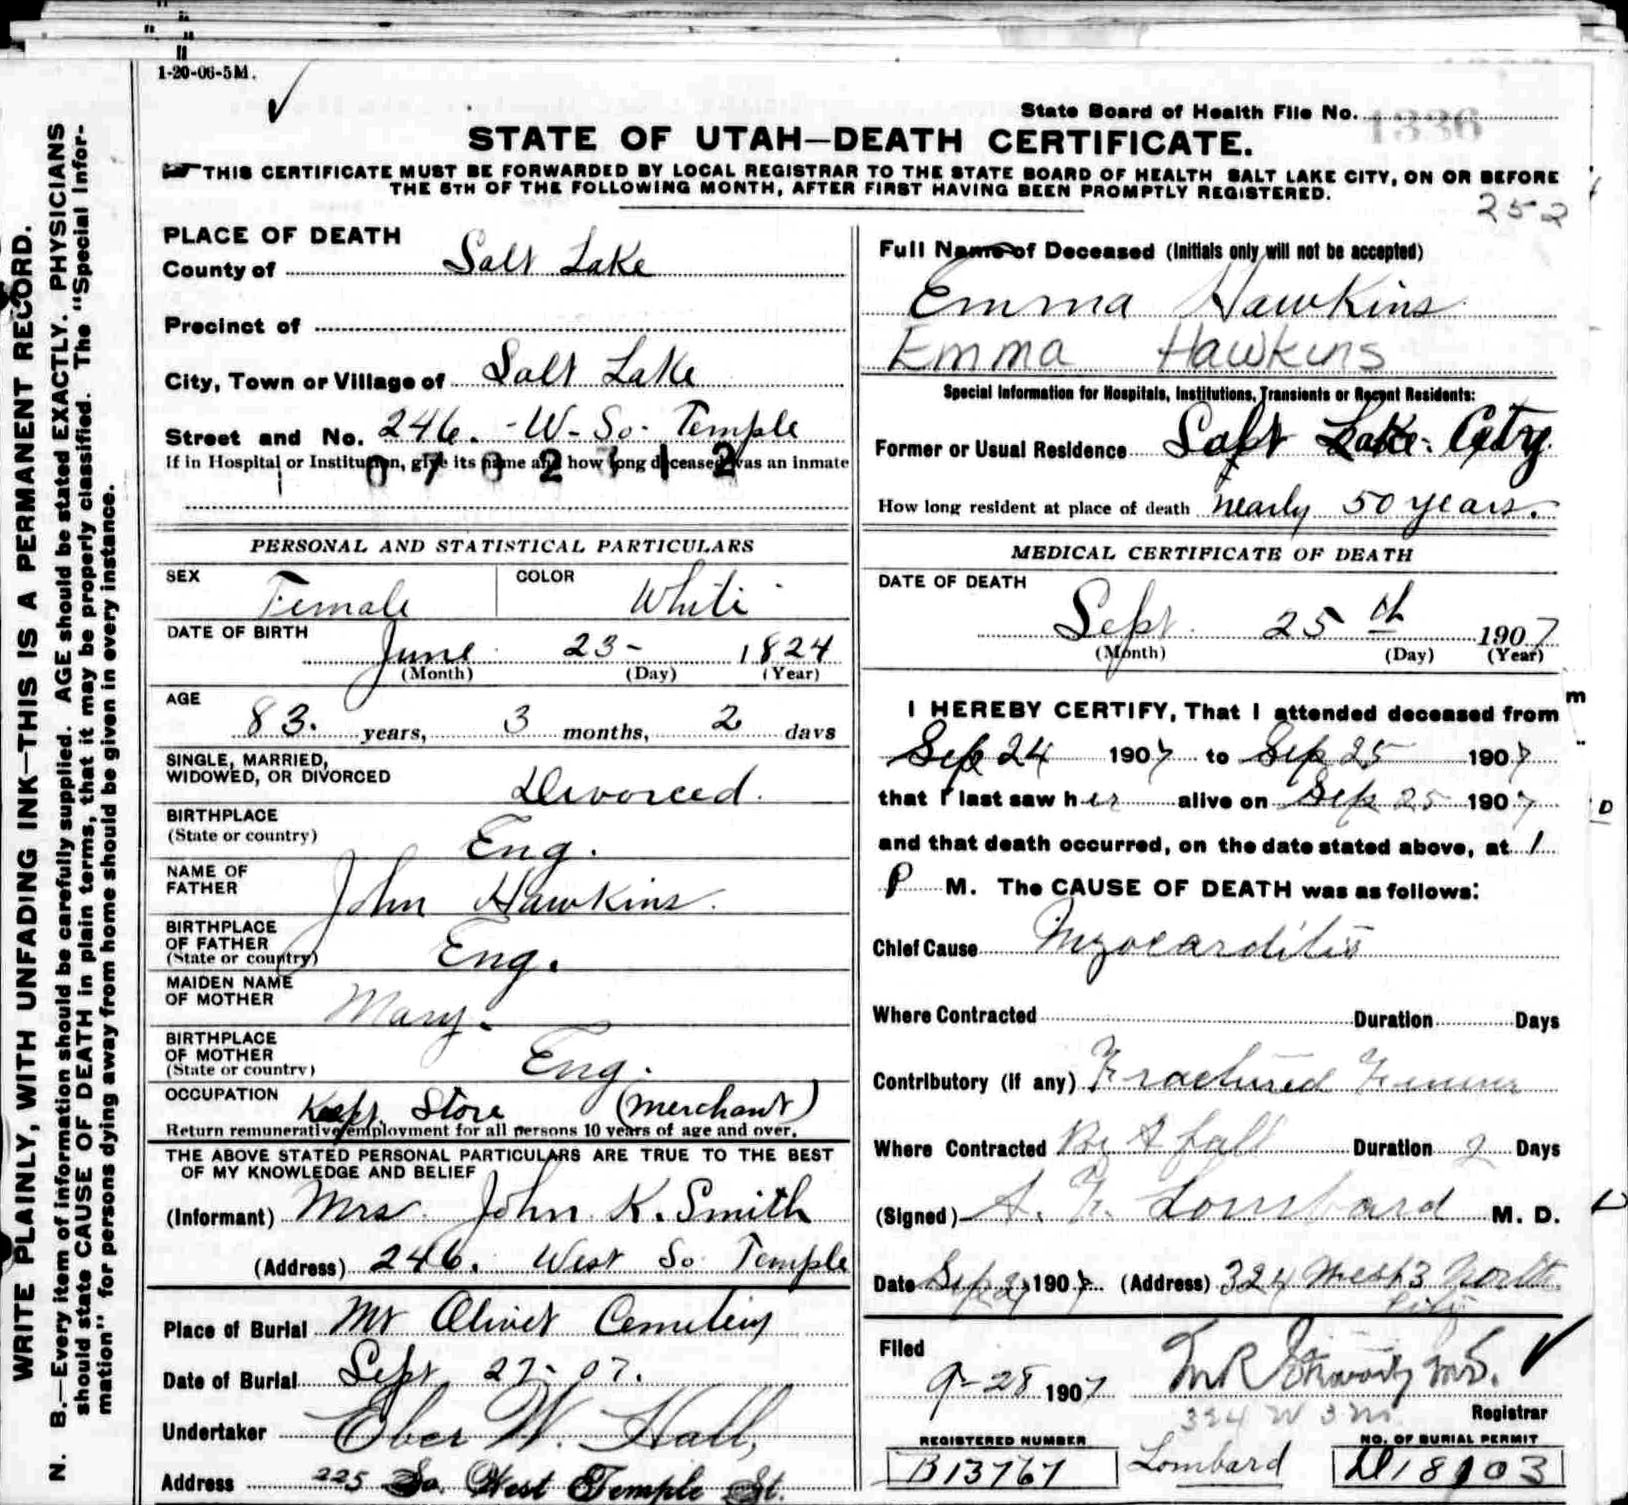 1-20-06-5M.
State Board of Health File No. 1336
STATE OF UTAH—DEATH CERTIFICATE.
THIS CERTIFICATE MUST BE FORWARDED BY LOCAL REGISTRAR TO THE STATE BOARD OF HEALTH SALT LAKE CITY, ON OR BEFORE
THE 5TH OF THE FOLLOWING MONTH, AFTER FIRST HAVING BEEN PROMPTLY REGISTERED.
252
WRITE PLAINLY, WITH UNFADING INK—THIS IS A PERMANENT RECORD.
N. B.—Every item of information should be carefully supplied. AGE should be stated EXACTLY. PHYSICIANS
should state CAUSE OF DEATH in plain terms, that it may be properly classified. The "Special Infor-
mation" for persons dying away from home should be given in every instance.
PLACE OF DEATH
County of Salt Lake
Precinct of
City, Town or Village of Salt Lake
Street and No. 246. - W- So- Temple
If in Hospital or Institution, give its name and how long deceased was an inmate
PERSONAL AND STATISTICAL PARTICULARS
SEX Female COLOR White
DATE OF BIRTH
June 23- 1824
(Month) (Day) (Year)
AGE
83. years, 3 months, 2 days
SINGLE, MARRIED,
WIDOWED, OR DIVORCED Divorced.
BIRTHPLACE
(State or country) Eng.
NAME OF
FATHER John Hawkins.
BIRTHPLACE
OF FATHER
(State or country) Eng.
MAIDEN NAME
OF MOTHER Mary.
BIRTHPLACE
OF MOTHER
(State or country) Eng.
OCCUPATION Keeps Store (Merchant)
Return remunerative employment for all persons 10 years of age and over.
THE ABOVE STATED PERSONAL PARTICULARS ARE TRUE TO THE BEST
OF MY KNOWLEDGE AND BELIEF
(Informant) Mrs. John K. Smith
(Address) 246. West So Temple
Place of Burial Mt Olivet Cemetery
Date of Burial Sept 27- 07.
Undertaker Eber W. Hall,
Address 225 So. West Temple St.
Full Name of Deceased (Initials only will not be accepted)
Emma Hawkins
Emma Hawkins
Special Information for Hospitals, Institutions, Transients or Recent Residents:
Former or Usual Residence Salt Lake City
How long resident at place of death nearly 50 years.
MEDICAL CERTIFICATE OF DEATH
DATE OF DEATH
Sept. 25th 1907
(Month) (Day) (Year)
I HEREBY CERTIFY, That I attended deceased from
Sep 24 1907 to Sep 25 1907
that I last saw her alive on Sep 25 1907
and that death occurred, on the date stated above, at 1
P M. The CAUSE OF DEATH was as follows:
Chief Cause Myocarditis
Where Contracted Duration Days
Contributory (if any) Fractured Femur
Where Contracted By A fall Duration 2 Days
(Signed) A. F. Lombard M. D.
Date Sep 1907 (Address) 324 West 3 North
City
Filed
9-28 1907 M.D.
324 W 3 N.
Registrar
REGISTERED NUMBER
B13767
Lombard
NO. OF BURIAL PERMIT